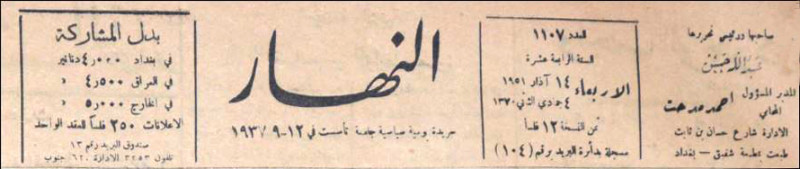 صاحبها ورئيس تحريرها
عبدالله حسن
المدير المسؤول
المحامي احمد مدحت
الادارة شارع حسان بن ثابت
طبعت بمطبعة شفيق - بغداد
العدد ١١٠٧
السنة الرابعة عشرة
الاربعاء ١٤ آذار ١٩٥١
٤ جمادي الثاني ١٣٧٠
ثمن النسخة ١٢ فلساً
مسجلة بدائرة البريد برقم (١٠٤)
النهار
جريدة يومية سياسية جامعة تأسست في ١٢-٩-١٩٣٧
بدل المشاركة
في بغداد ٤,٠٠٠ دنانير
في العراق ٤,٥٠٠ »
في الخارج ٥,٠٠٠ »
الاعلانات ٢٥٠ فلساً للعقد الواحد
صندوق البريد رقم ١٣
تلفون ٣٢٥٣ الادارة ٦٢٠ جنوب